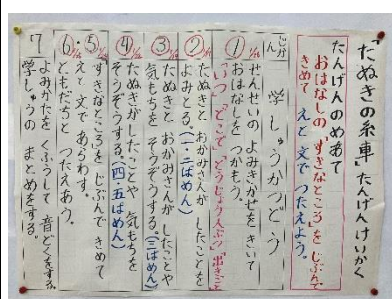 「たぬきの糸車」たんげんけいかく
たんげんのめあて
おはなしの、すきなところを じぶんで
きめて えと文で つたえよう。
じかん
学しゅうかつどう
① 
せんせいの よみきかせを きいて
おはなしを つかもう。
「いつ」「どこで」「とうじょうじんぶつ」「出きごと」
② 
たぬきと おかみさんが したことを
よみとる。(一・二ばめん)
③ 
たぬきと おかみさんが したことや
気もちを そうぞうする。(三ばめん)
④ 
たぬきが したことや 気もちを
そうぞうする。(四・五ばめん)
⑤
すきなところを じぶんで きめて
えと文で あらわす。
⑥
ともだちと つたえあう。
7
よみかたを くふうして 音どくをする。
学しゅうの まとめをする。